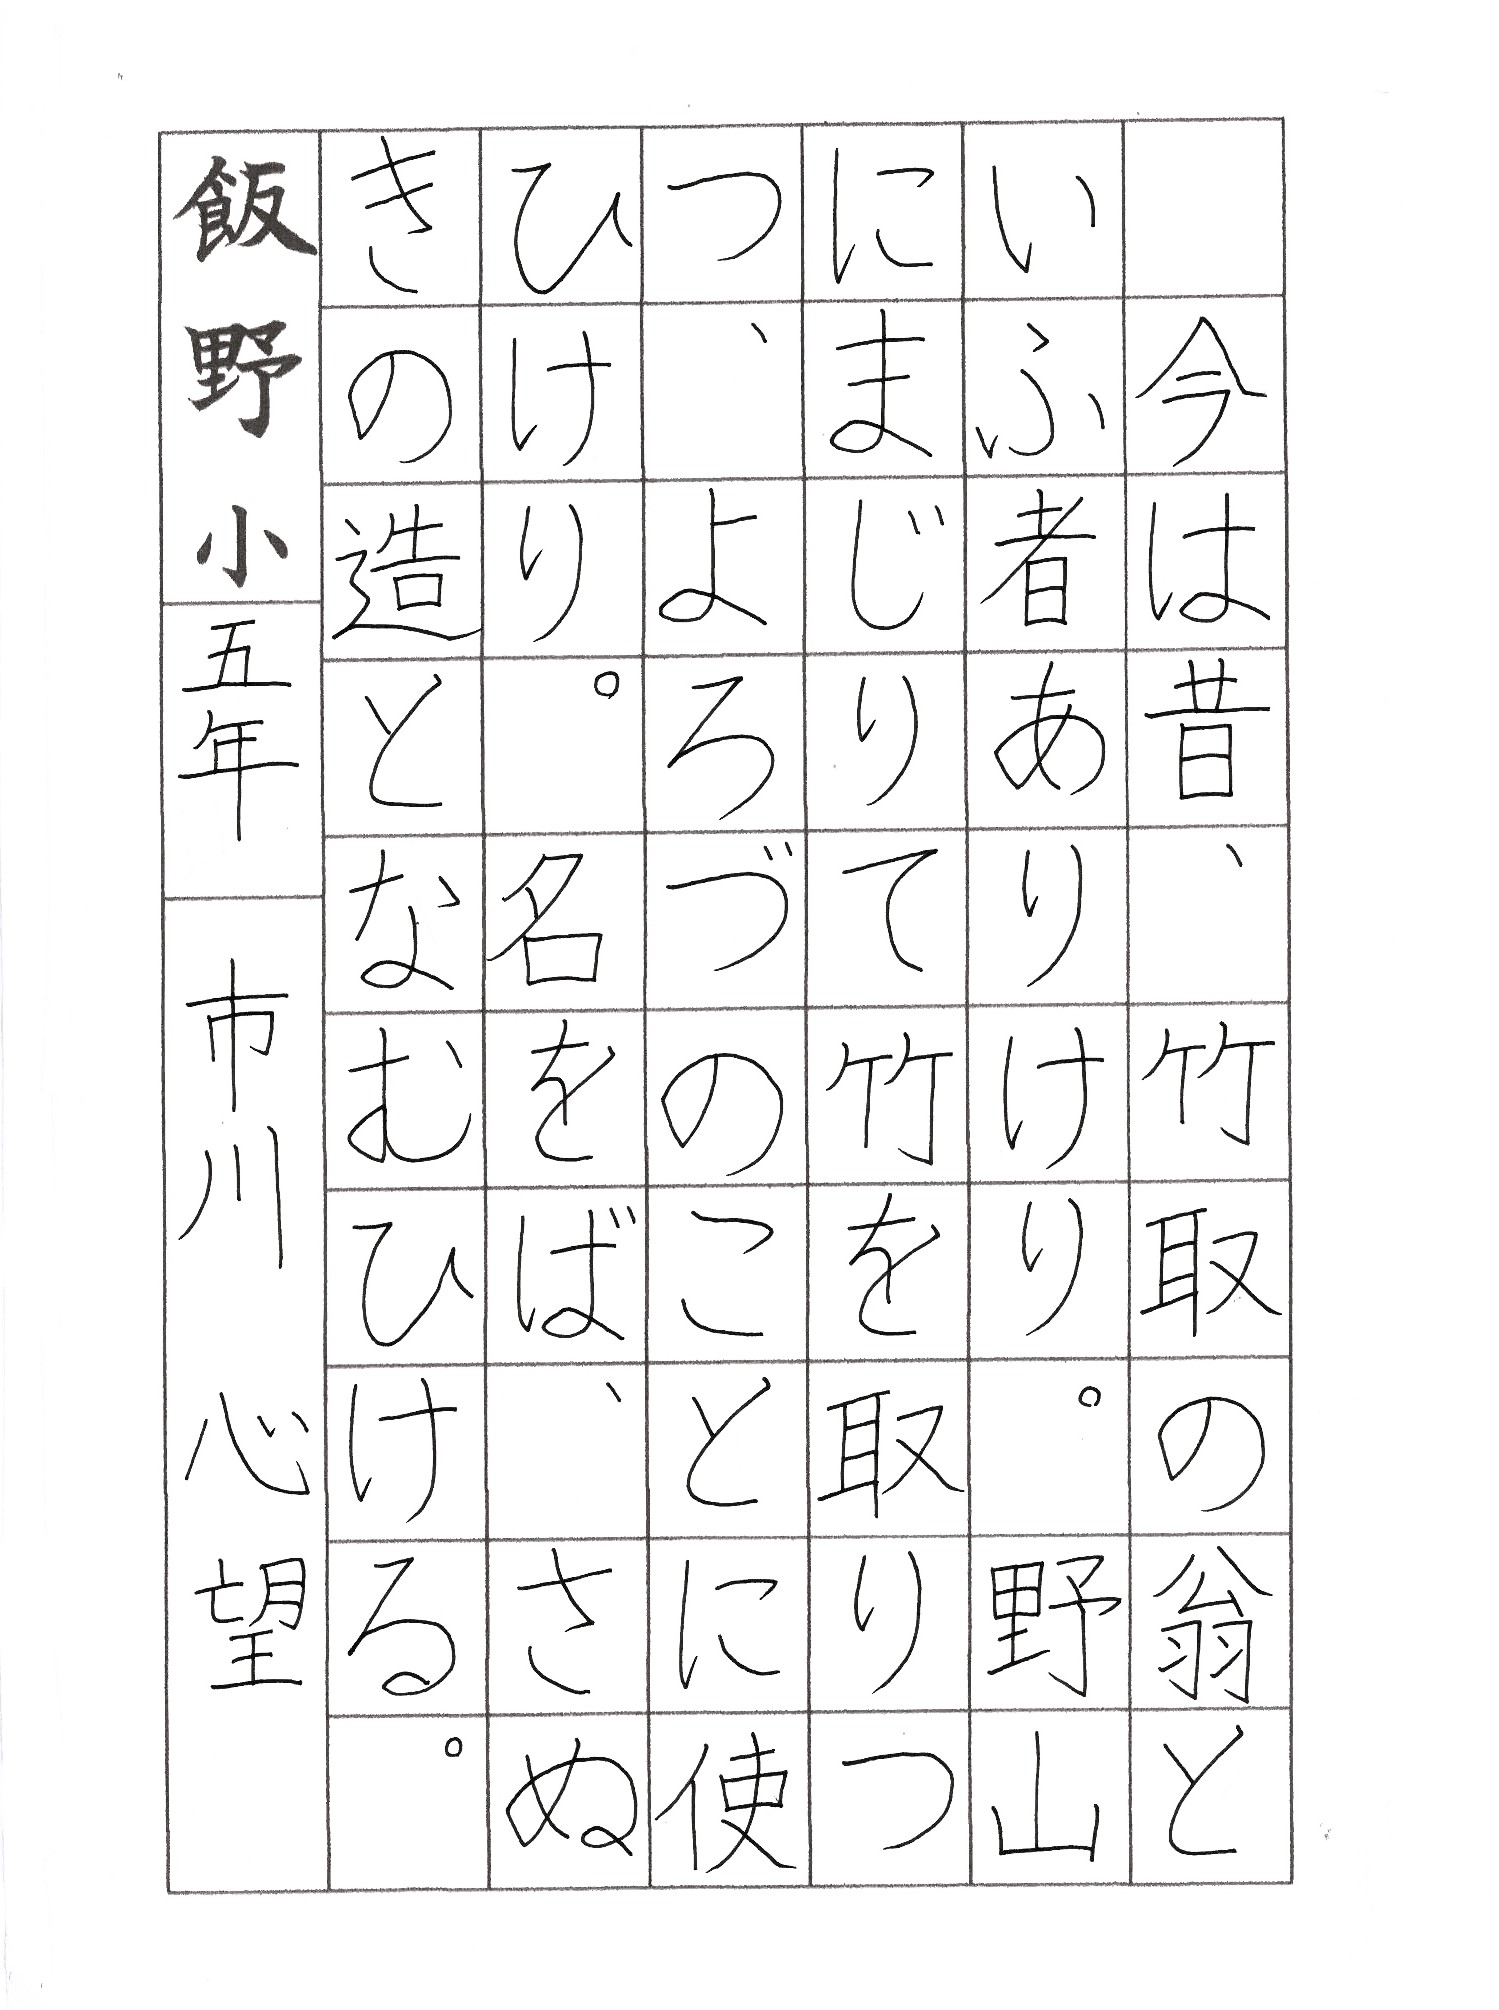 今は昔、竹取の翁と
いふ者あり けり。野山
にまじりて竹を取りつ
つ、よろづのことに使
ひけり。名をば、さぬ
きの造となむひける。
飯野小 五年 市川 心望